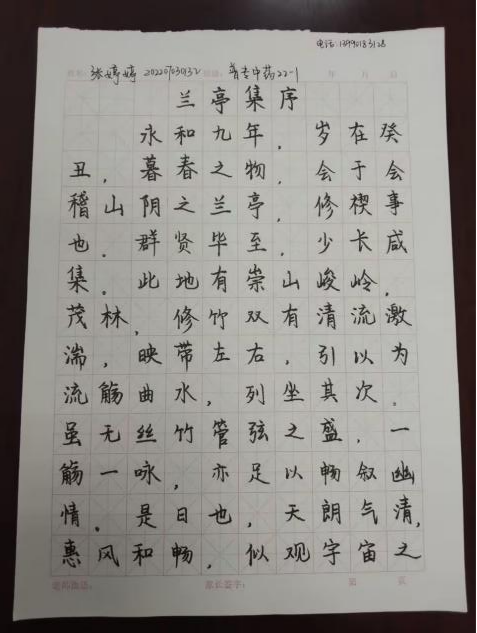 电话: 13990183128
张婷婷 202207030132 普专中药22-1
年 月 日
兰亭集序
永和九年，岁在癸
丑，暮春之物，会于会
稽山阴之兰亭，修楔事
也。群贤毕至，少长咸
集。此地有崇山峻岭，
茂林，修竹双有清流激
湍，映带左右，引以为
流觞曲水，列坐其次。
虽无丝竹管弦之盛，一
觞一咏，亦足以畅叙幽
情。是日也，天朗气清，
惠风和畅，似观宇宙之
家长签字：
第 页